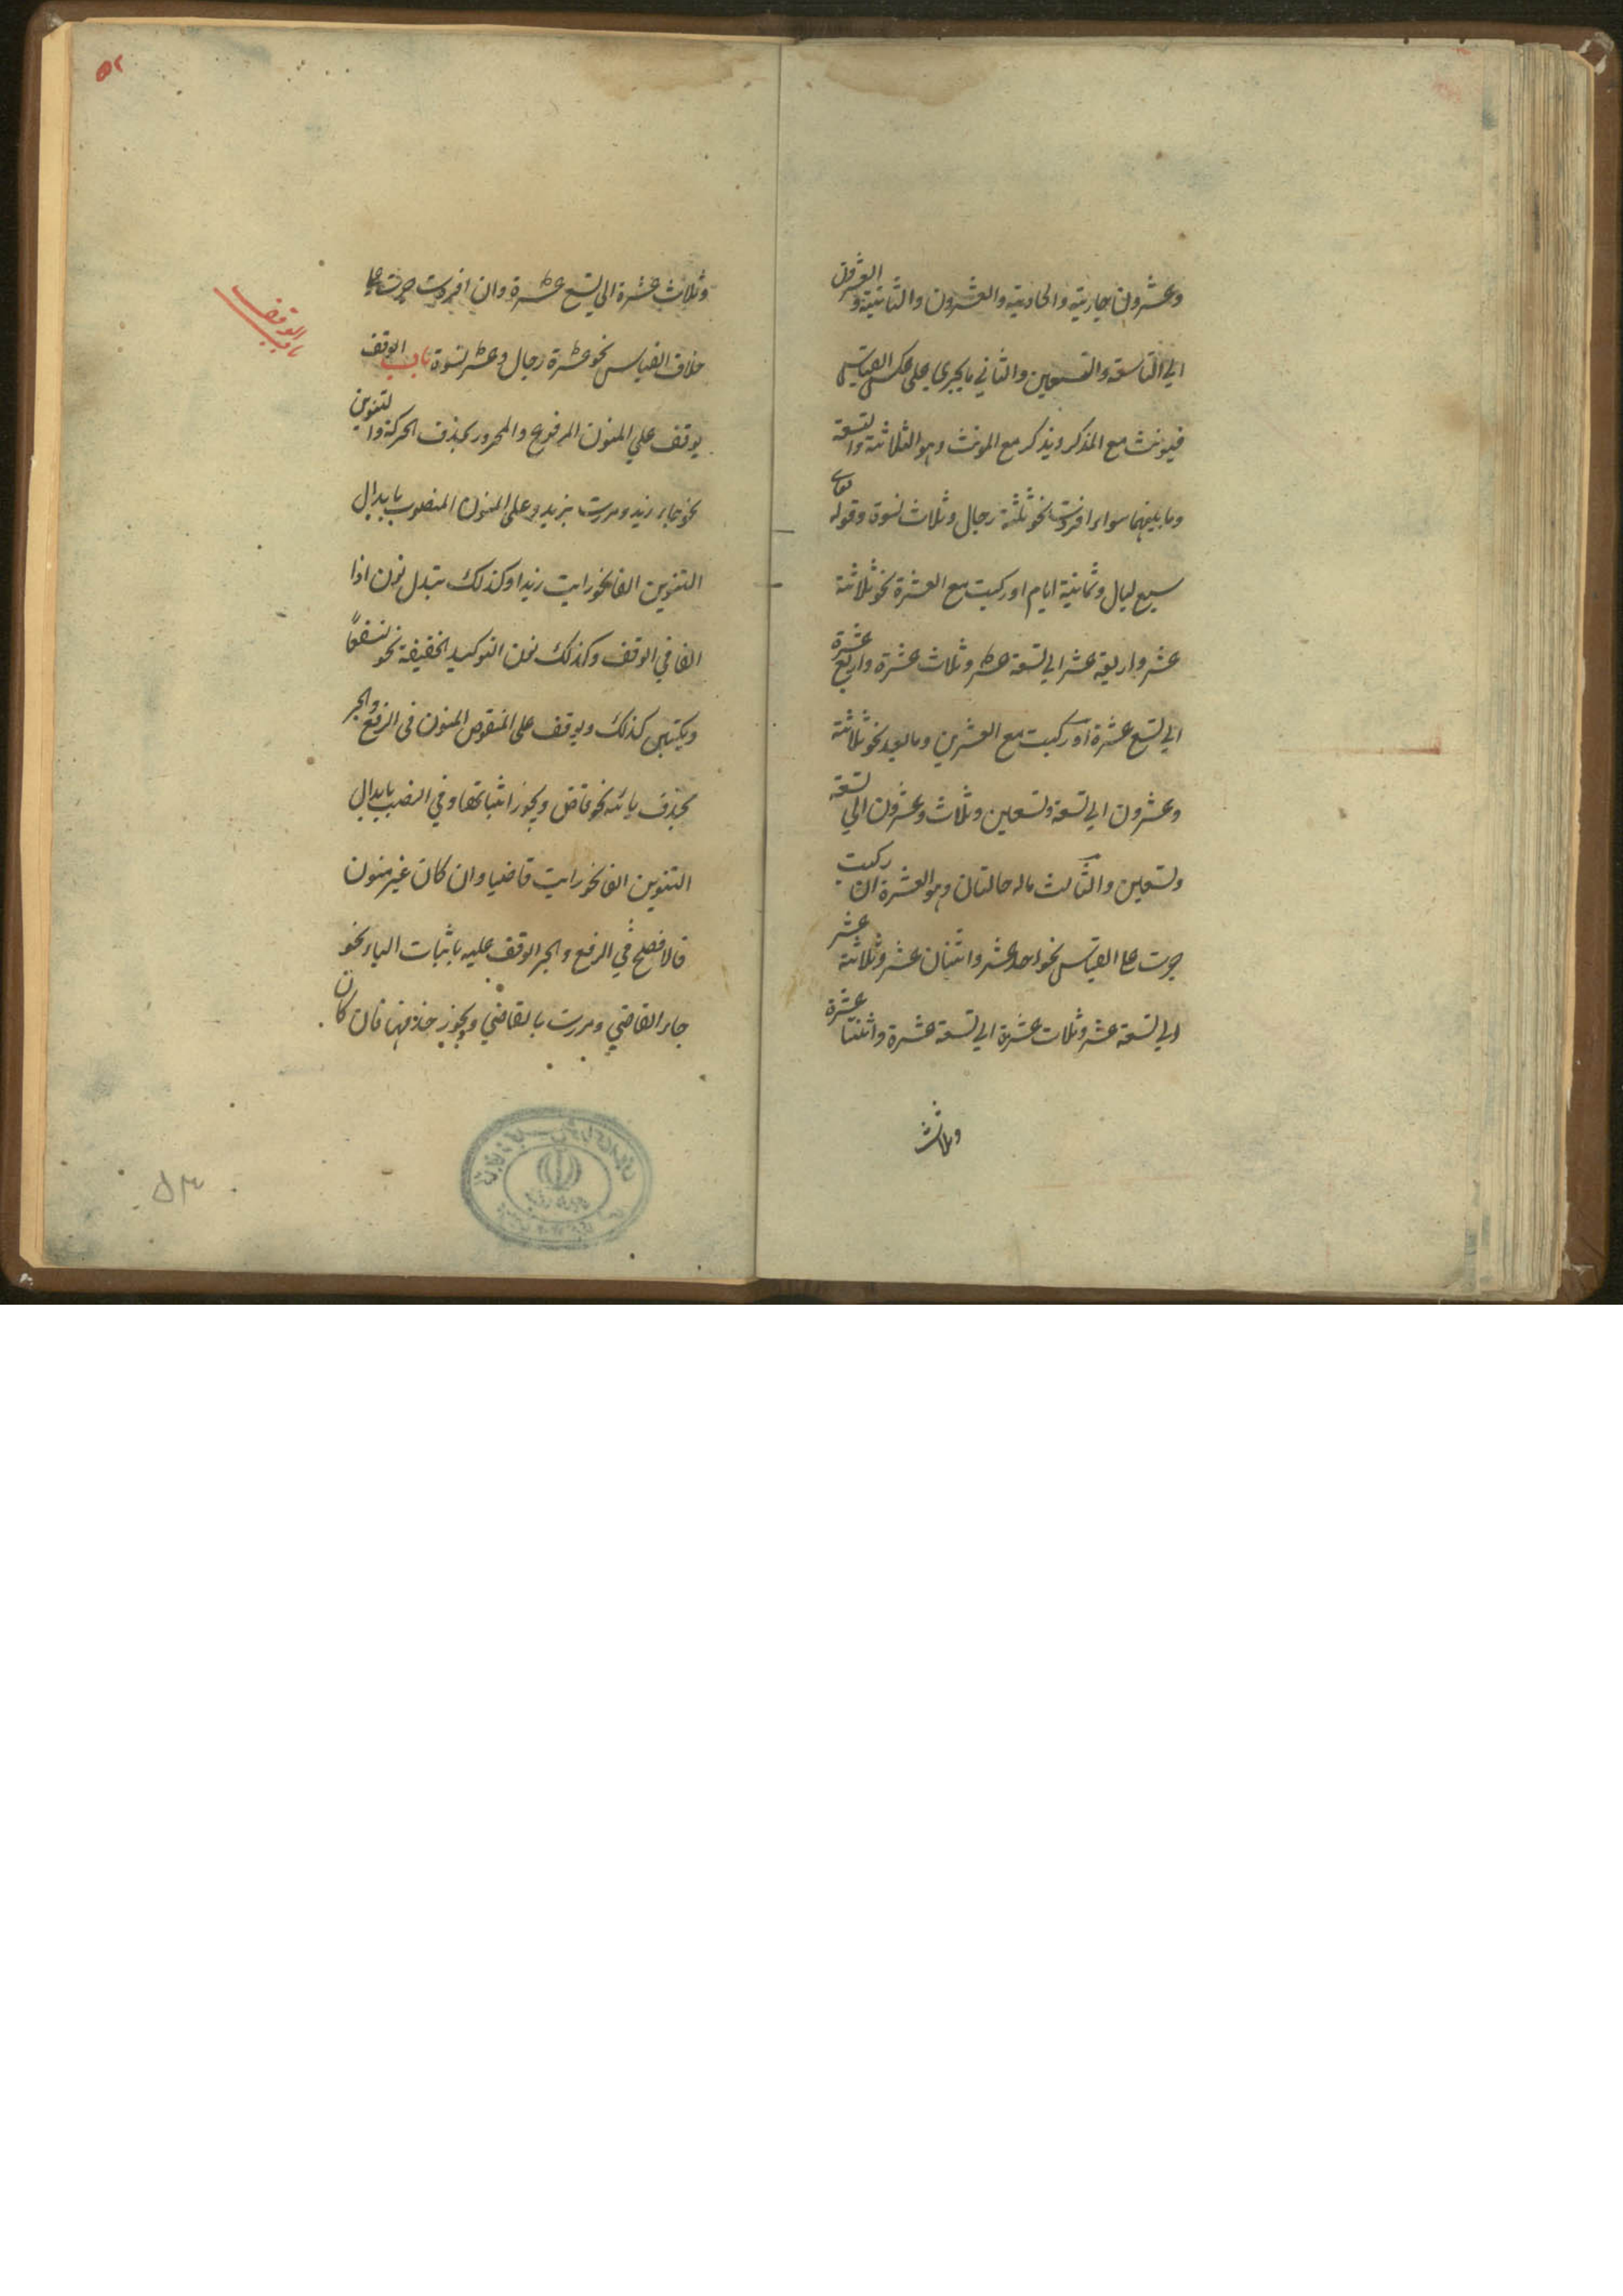 وعشرون جارية والحادية والعشرون والثانية والعشرون
الي التاسعة والتسعين والثاني ما يجري علي عكس القياس
فيونث مع المذكر ويذكر مع المونث وهو الثلاثة والتسعة
وما بينهما سواء افردت نحو ثلثة رجال وثلاث نسوة وقوله تعالى
سبع ليال وثمانية ايام او ركبت مع العشرة نحو ثلاثة
عشر واربعة عشر الي تسعة عشر وثلاث عشرة واربع عشرة
الي تسع عشرة او ركبت مع العشرين وما بعد نحو ثلاثة
وعشرون الي تسعة وتسعين وثلاث وعشرون الي تسعة
وتسعين والثالث ماله حالتان وهو العشرة ان ركبت
جرت علا القياس نحو احد عشر واثنان عشر وثلاثة عشر
الي تسعة عشر وثلاث عشرة الي تسعة عشرة واثنتا عشرة
وثلاث
٥٢
وثلاث عشرة الي تسع عشرة وان افردت جرت علا
خلاف القياس نحو عشرة رجال وعشر نسوة باب الوقف
باب الوقف
يوقف علي المنون المرفوع والمجرور بحذف الحركة والتنوين
نحو جاء زيد ومررت بزيد وعلى المنون المنصوب بابدال
التنوين الفا نحو رايت زيدا وكذلك تبدل نون اذا
الفا في الوقف وكذلك نون التوكيد الخفيفة نحو لنسفعًا
ويكتبن كذلك ويوقف على المنقوص المنون فى الرفع والجر
بحذف يائه نحو قاض ويجوز اثباتها وفي النصب بابدال
التنوين الفا نحو رايت قاضيا وان كان غير منون
فالافصح في الرفع والجر الوقف عليه باثبات الياء نحو
جاء القاضي ومررت بالقاضي ويجوز حذفها فان كان
٥٣